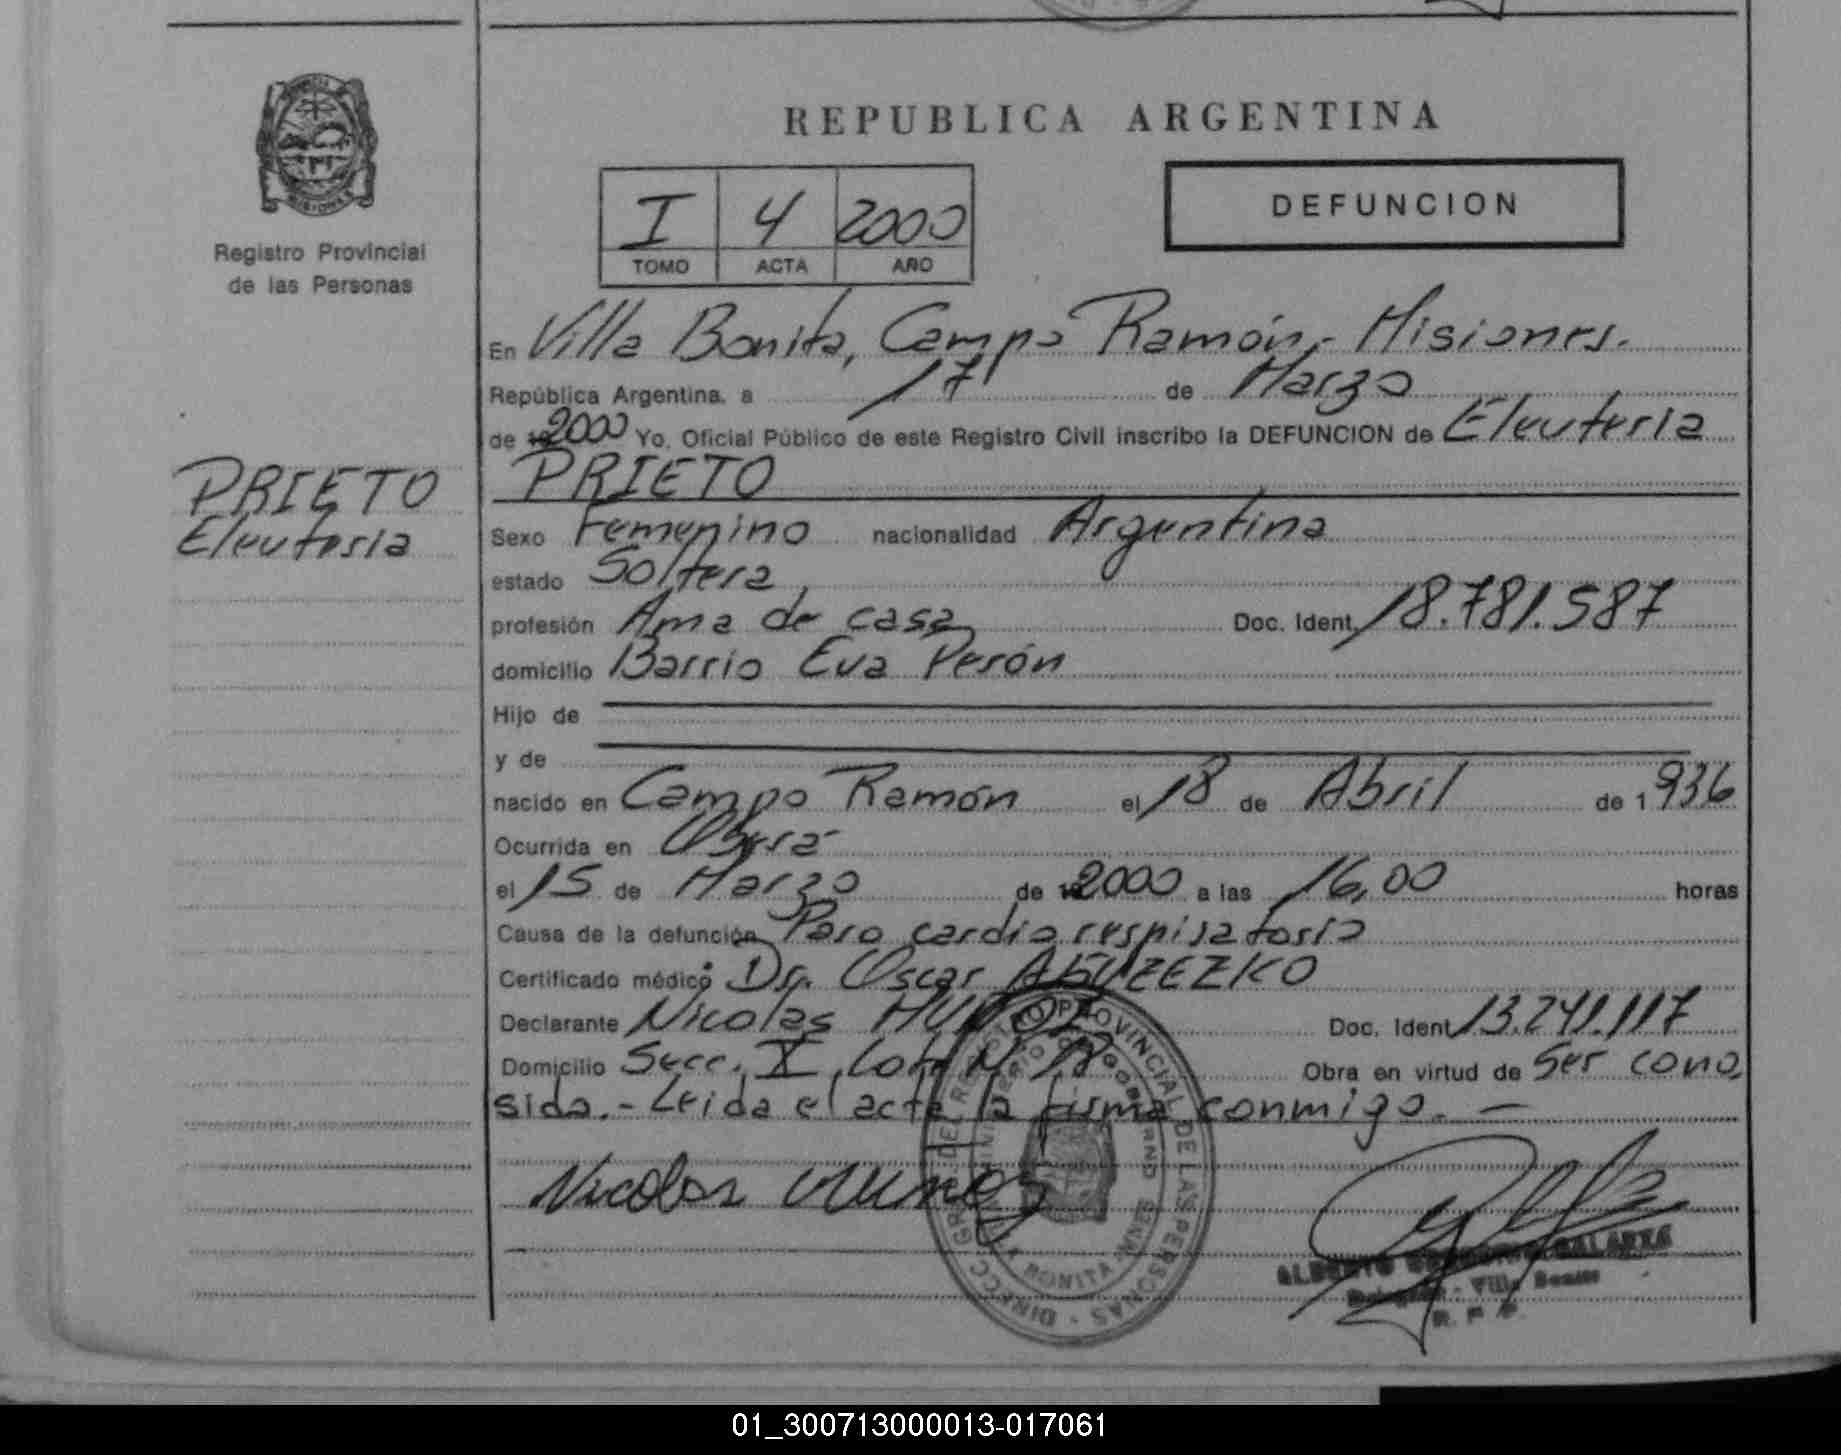 REPUBLICA ARGENTINA
Registro Provincial
de las Personas
I 4 2000
TOMO ACTA AÑO
DEFUNCION
En Villa Bonita, Campo Ramón - Misiones.
República Argentina, a 17 de Marzo
de 19 2000 Yo, Oficial Público de este Registro Civil inscribo la DEFUNCION de Eleuteria
PRIETO
PRIETO
Eleuteria
Sexo Femenino nacionalidad Argentina
estado Soltera
profesión Ama de casa Doc. Ident. 18.781.587
domicilio Barrio Eva Perón
Hijo de
y de
nacido en Campo Ramón el 18 de Abril de 1936
Ocurrida en Oberá
el 15 de Marzo de 19 2000 a las 16,00 horas
Causa de la defunción Paro cardio respiratorio
Certificado médico Dr. Oscar
Declarante Nicolas Doc. Ident. 13.241.117
Domicilio Secc. X Lote Nº Obra en virtud de Ser cono
sida.- Leida el acta la firma conmigo. —
Nicolas
DIRECC. GRAL. DEL REGISTRO PROVINCIAL DE LAS PERSONAS
BONITA
ALBERTO
Villa Bonita
R. P. P.
01_300713000013-017061